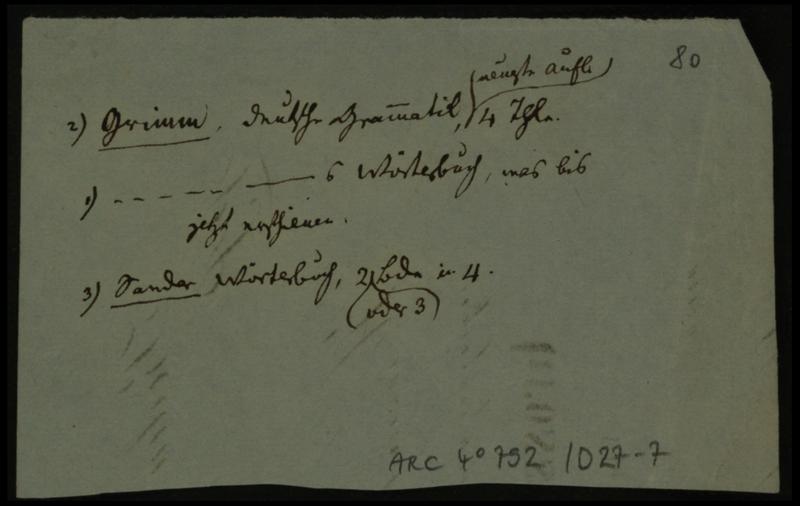 80
(neuste Aufl.)
2) Grimm, deutsche Grammatik, 4 Thle.
1) – – – – – —— s Wörterbuch, was bis
jetzt erschienen.
3) Sander Wörterbuch, 2 Bde in 4.
(oder 3)
ARC 4° 792 / D27-7